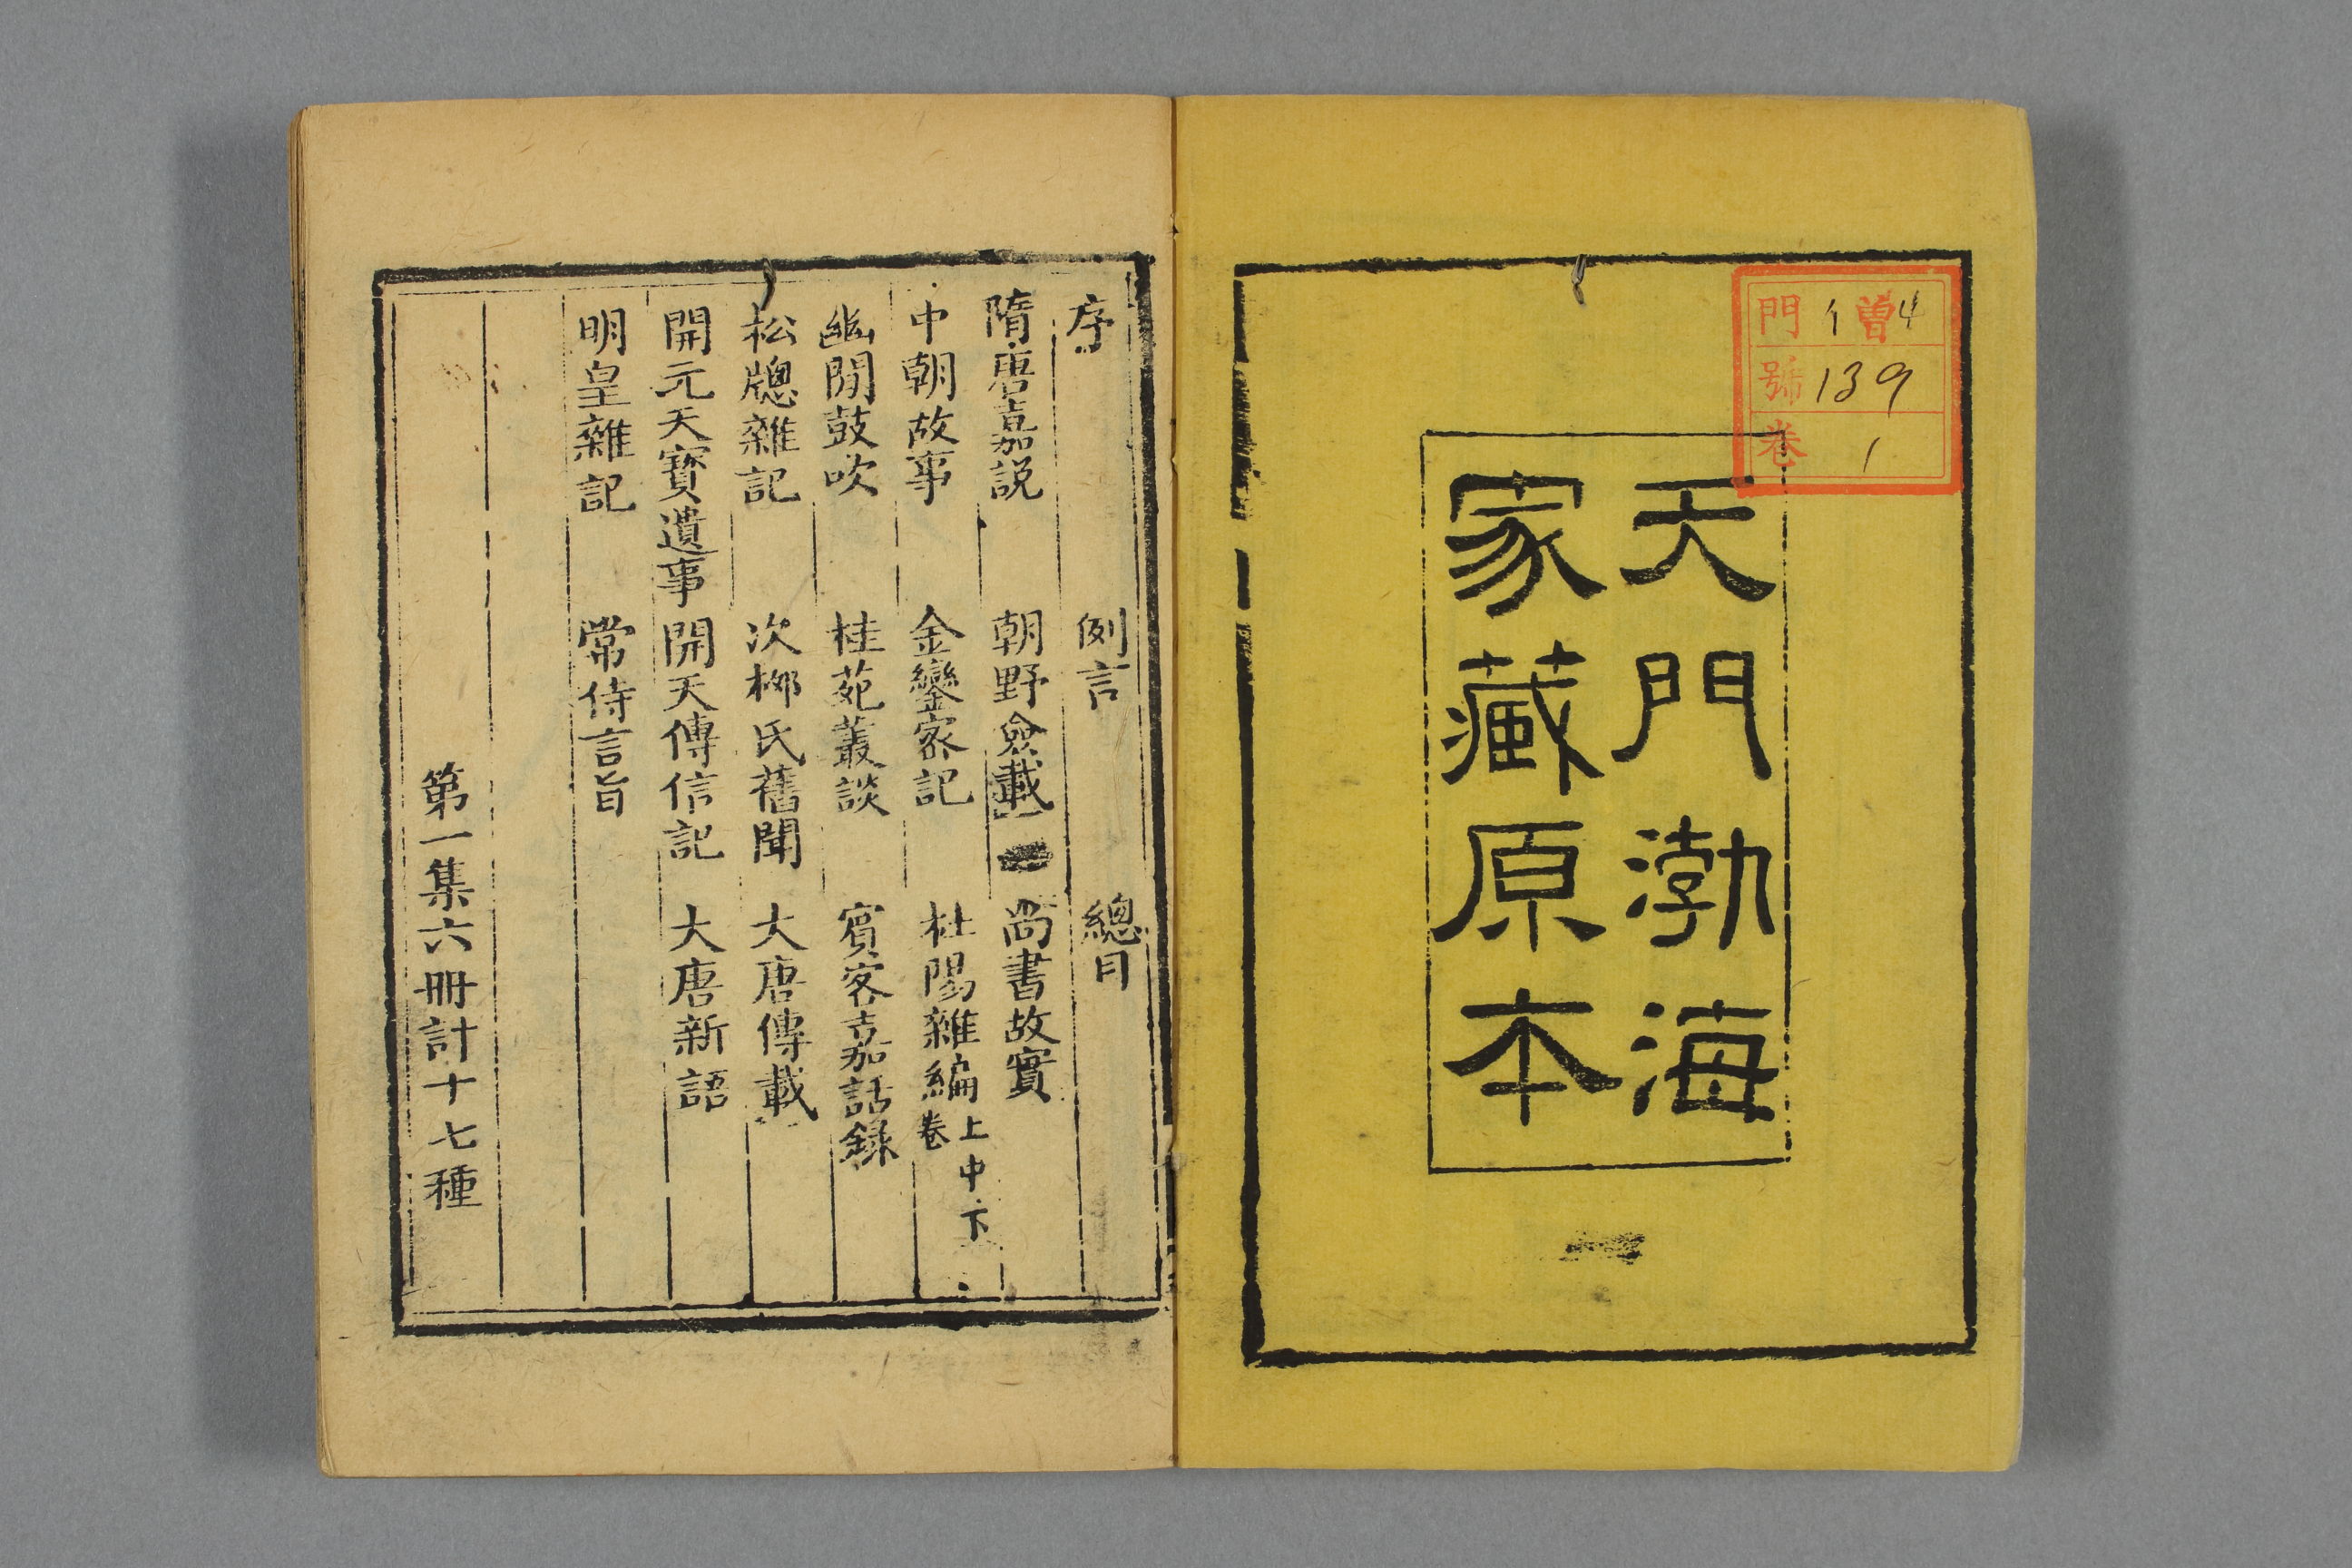 天門渤海
家藏原本
門 イ曽4
號 139
卷 1
序 例言 總目
隋唐嘉説 朝野僉載 尚書故實
中朝故事 金鑾宻記 杜陽雜編上中下卷
幽閒鼓吹 桂苑叢談 賓客嘉話録
松牕雜記 次柳氏舊聞 大唐傳載
開元天寳遺事 開天傳信記 大唐新語
明皇雜記 常侍言旨
第一集六冊計十七種